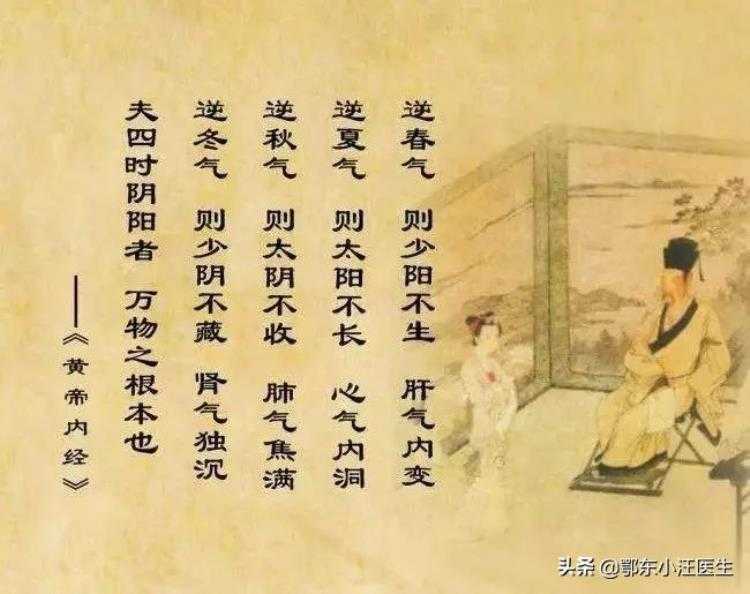 逆春气 则少阳不生 肝气内变
逆夏气 则太阳不长 心气内洞
逆秋气 则太阴不收 肺气焦满
逆冬气 则少阴不藏 肾气独沉
夫四时阴阳者 万物之根本也
——《黄帝内经》
头条 @鄂东小汪医生